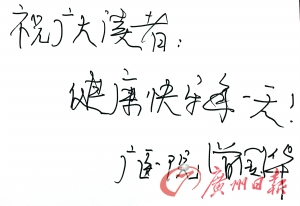 祝广大读者：
健康快乐每一天！
广医一院
广州日报